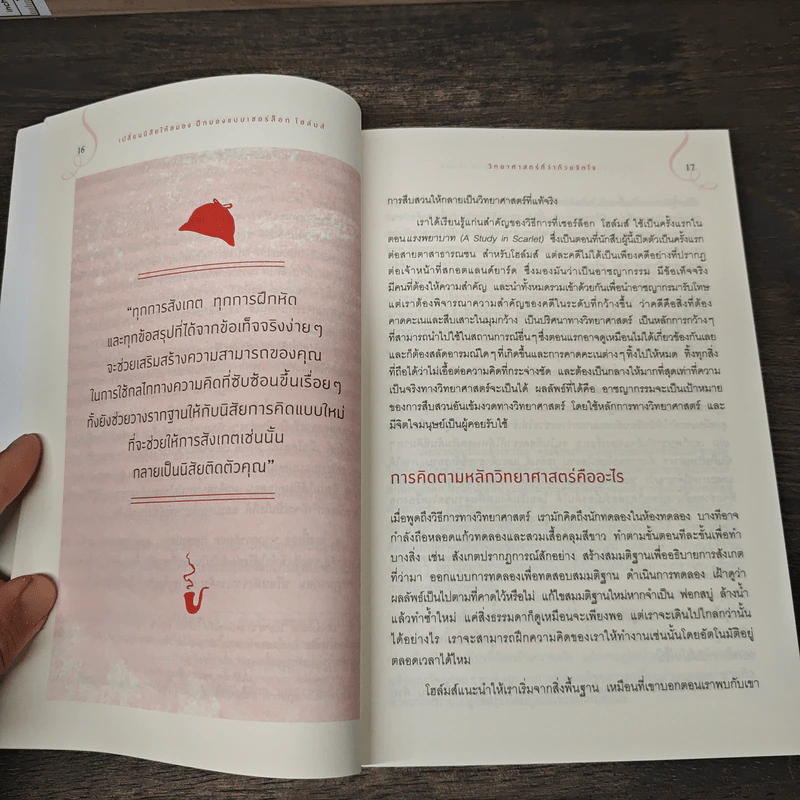 16
เปลี่ยนนิสัยให้สมอง ฝึกมองแบบเชอร์ล็อก โฮล์มส์
“ทุกการสังเกต ทุกการฝึกหัด
และทุกข้อสรุปที่ได้จากข้อเท็จจริงง่ายๆ
จะช่วยเสริมสร้างความสามารถของคุณ
ในการใช้กลไกทางความคิดที่ซับซ้อนขึ้นเรื่อยๆ
ทั้งยังช่วยวางรากฐานให้กับนิสัยการคิดแบบใหม่
ที่จะช่วยให้การสังเกตเช่นนั้น
กลายเป็นนิสัยติดตัวคุณ”
วิทยาศาสตร์ที่ว่าด้วยจิตใจ
17
การสืบสวนให้กลายเป็นวิทยาศาสตร์ที่แท้จริง
เราได้เรียนรู้แก่นสำคัญของวิธีการที่เชอร์ล็อก โฮล์มส์ ใช้เป็นครั้งแรกใน
ตอนแรงพยาบาท (A Study in Scarlet) ซึ่งเป็นตอนที่นักสืบผู้นี้เปิดตัวเป็นครั้งแรก
ต่อสายตาสาธารณชน สำหรับโฮล์มส์ แต่ละคดีไม่ได้เป็นเพียงคดีอย่างที่ปรากฏ
ต่อเจ้าหน้าที่สกอตแลนด์ยาร์ด ซึ่งมองมันว่าเป็นอาชญากรรม มีข้อเท็จจริง
มีคนที่ต้องให้ความสำคัญ และนำทั้งหมดรวมเข้าด้วยกันเพื่อนำอาชญากรมารับโทษ
แต่เราต้องพิจารณาความสำคัญของคดีในระดับที่กว้างขึ้น ว่าคดีคือสิ่งที่ต้อง
คาดคะเนและสืบเสาะในมุมกว้าง เป็นปริศนาทางวิทยาศาสตร์ เป็นหลักการกว้างๆ
ที่สามารถนำไปใช้ในสถานการณ์อื่นๆ ซึ่งตอนแรกอาจดูเหมือนไม่ได้เกี่ยวข้องกันเลย
และก็ต้องสลัดอารมณ์ใดๆ ที่เกิดขึ้นและการคาดคะเนต่างๆ ทิ้งไปให้หมด ทิ้งทุกสิ่ง
ที่ถือได้ว่าไม่เอื้อต่อความคิดที่กระจ่างชัด และต้องเป็นกลางให้มากที่สุดเท่าที่ความ
เป็นจริงทางวิทยาศาสตร์จะเป็นได้ ผลลัพธ์ที่ได้คือ อาชญากรรมจะเป็นเป้าหมาย
ของการสืบสวนอันเข้มงวดทางวิทยาศาสตร์ โดยใช้หลักการทางวิทยาศาสตร์ และ
มีจิตใจมนุษย์เป็นผู้คอยรับใช้
การคิดตามหลักวิทยาศาสตร์คืออะไร
เมื่อพูดถึงวิธีการทางวิทยาศาสตร์ เรามักคิดถึงนักทดลองในห้องทดลอง บางทีอาจ
กำลังถือหลอดแก้วทดลองและสวมเสื้อคลุมสีขาว ทำตามขั้นตอนทีละขั้นเพื่อทำ
บางสิ่ง เช่น สังเกตปรากฏการณ์สักอย่าง สร้างสมมติฐานเพื่ออธิบายการสังเกต
ที่ว่ามา ออกแบบการทดลองเพื่อทดสอบสมมติฐาน ดำเนินการทดลอง เฝ้าดูว่า
ผลลัพธ์เป็นไปตามที่คาดไว้หรือไม่ แก้ไขสมมติฐานใหม่หากจำเป็น ฟอกสบู่ ล้างน้ำ
แล้วทำซ้ำใหม่ แค่สิ่งธรรมดาก็ดูเหมือนจะเพียงพอ แต่เราจะเดินไปไกลกว่านั้น
ได้อย่างไร เราจะสามารถฝึกความคิดของเราให้ทำงานเช่นนั้นโดยอัตโนมัติอยู่
ตลอดเวลาได้ไหม
โฮล์มส์แนะนำให้เราเริ่มจากสิ่งพื้นฐาน เหมือนที่เขาบอกตอนเราพบกับเขา